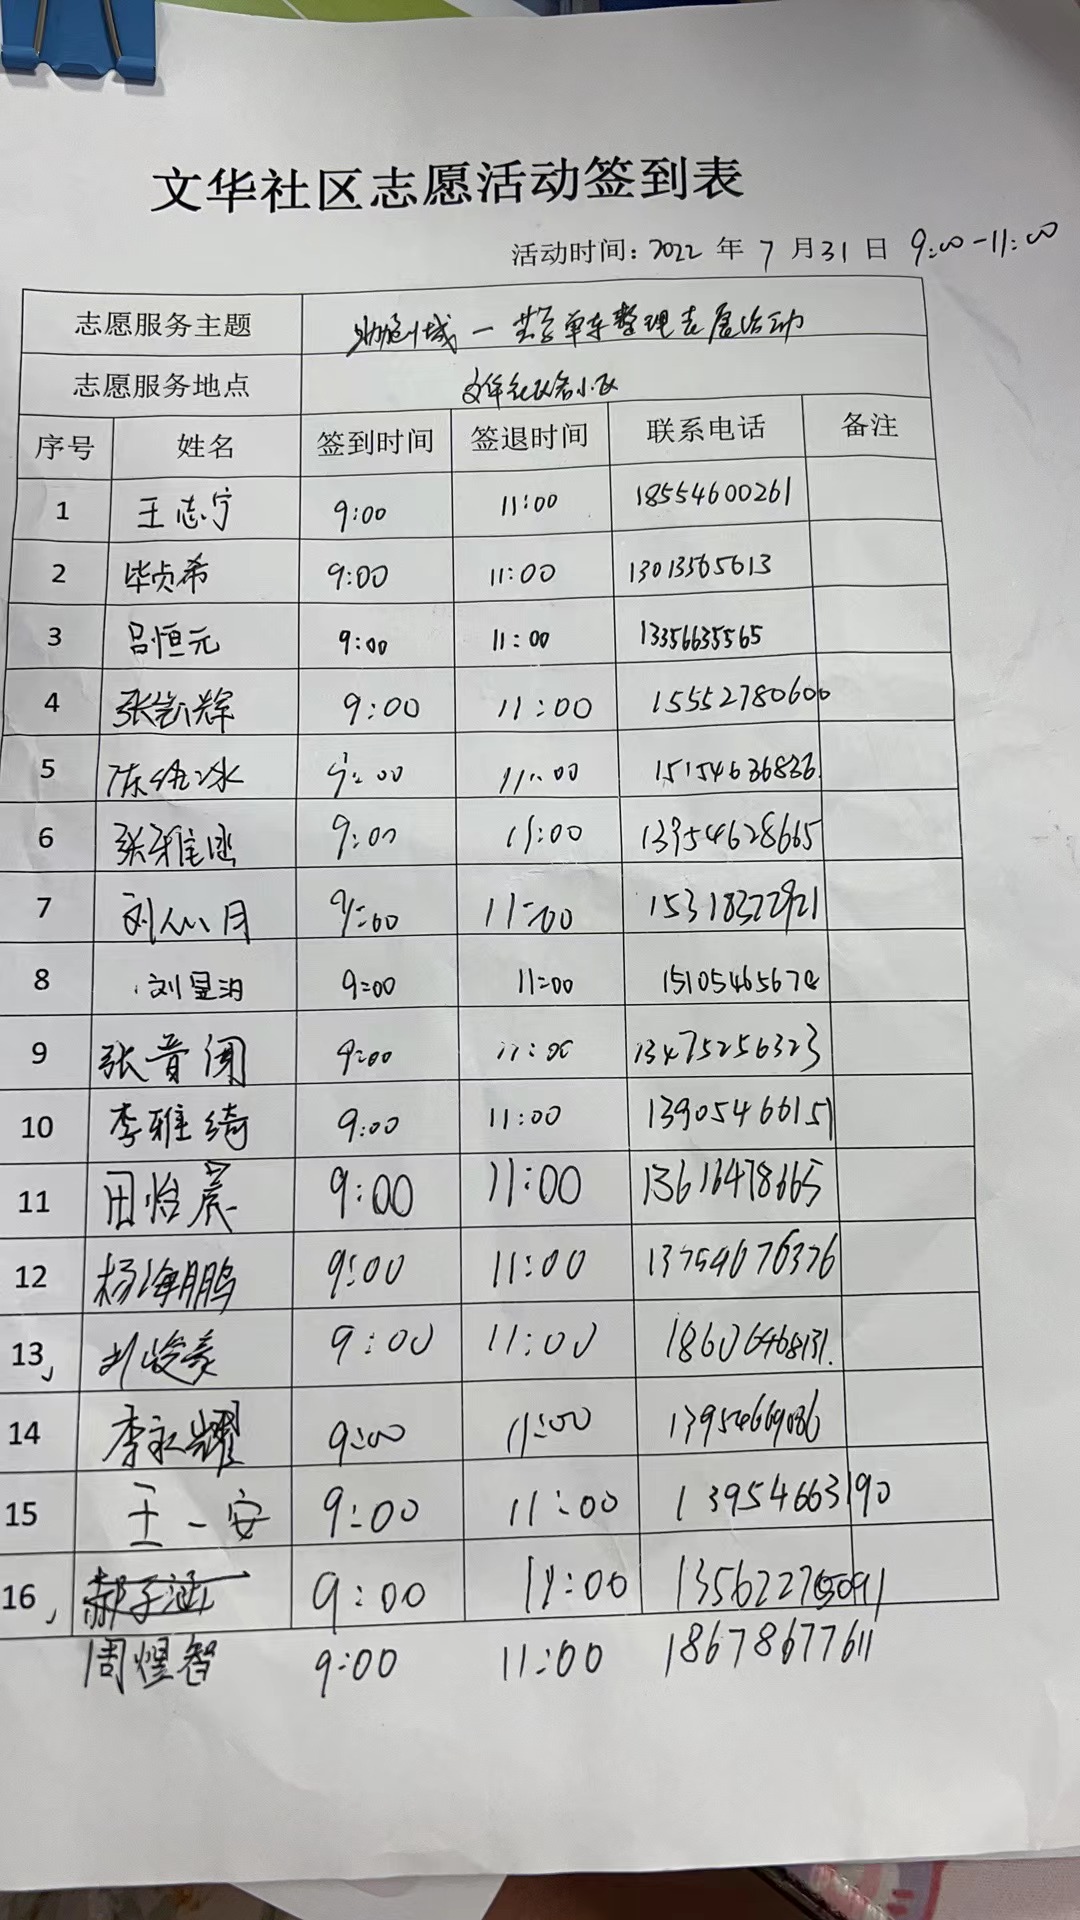 文华社区志愿活动签到表
活动时间: 2022 年 7 月 31 日 9:00-11:00
志愿服务主题 助创城一共享单车整理志愿活动
志愿服务地点 文华社区各小区
序号 姓名 签到时间 签退时间 联系电话 备注
1 王志宁 9:00 11:00 18554600261
2 毕贞希 9:00 11:00 13013565613
3 吕恒元 9:00 11:00 13356635565
4 张凯辉 9:00 11:00 15552780600
5 陈冰 9:00 11:00 15154636836
6 张雅涵 9:00 11:00 13954628665
7 刘心月 9:00 11:00 15318372921
8 刘昱泊 9:00 11:00 1510546567
9 张音闻 9:00 11:00 13475256323
10 李雅绮 9:00 11:00 13905466151
11 田怡晨 9:00 11:00 13616478665
12 杨海鹏 9:00 11:00 13754676376
13、 刘峻豪 9:00 11:00 18606468131.
14 李永耀 9:00 11:00 13954669086
15 王一安 9:00 11:00 13954663190
16、 郝子涵 9:00 11:00 135622
周煜智 9:00 11:00 18678677611